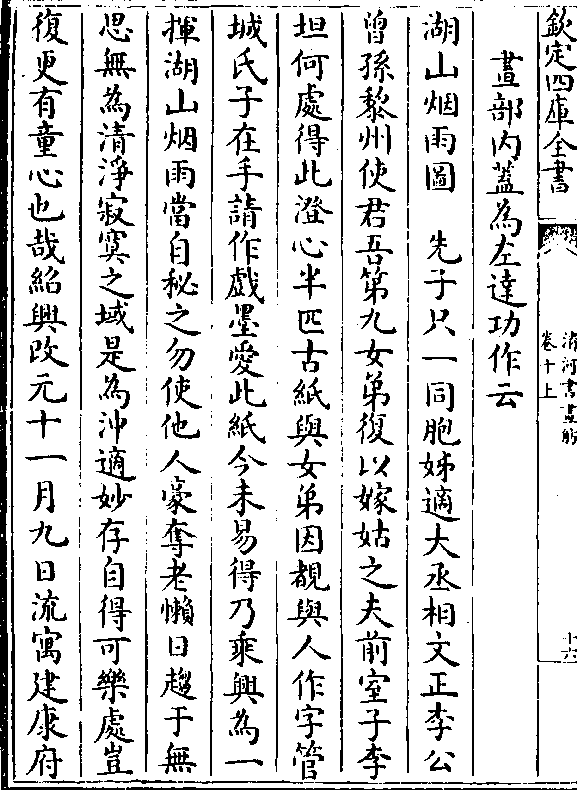 欽定四庫全書
清河書畫舫
卷十上
十六
畫部内蓋為左達功作云
湖山烟雨圖　先子只一同胞姊適大丞相文正李公
曾孫黎州使君吾第九女弟復以嫁姑之夫前室子李
坦何處得此澄心半匹古紙與女弟因覩與人作字管
城氏子在手請作戯墨愛此紙今未易得乃乘興為一
揮湖山烟雨當自秘之勿使他人豪奪老懶日趨于無
思無為清淨寂寞之域是為沖適妙存自得可樂處豈
復更有童心也哉紹興改元十一月九日流寓建康府